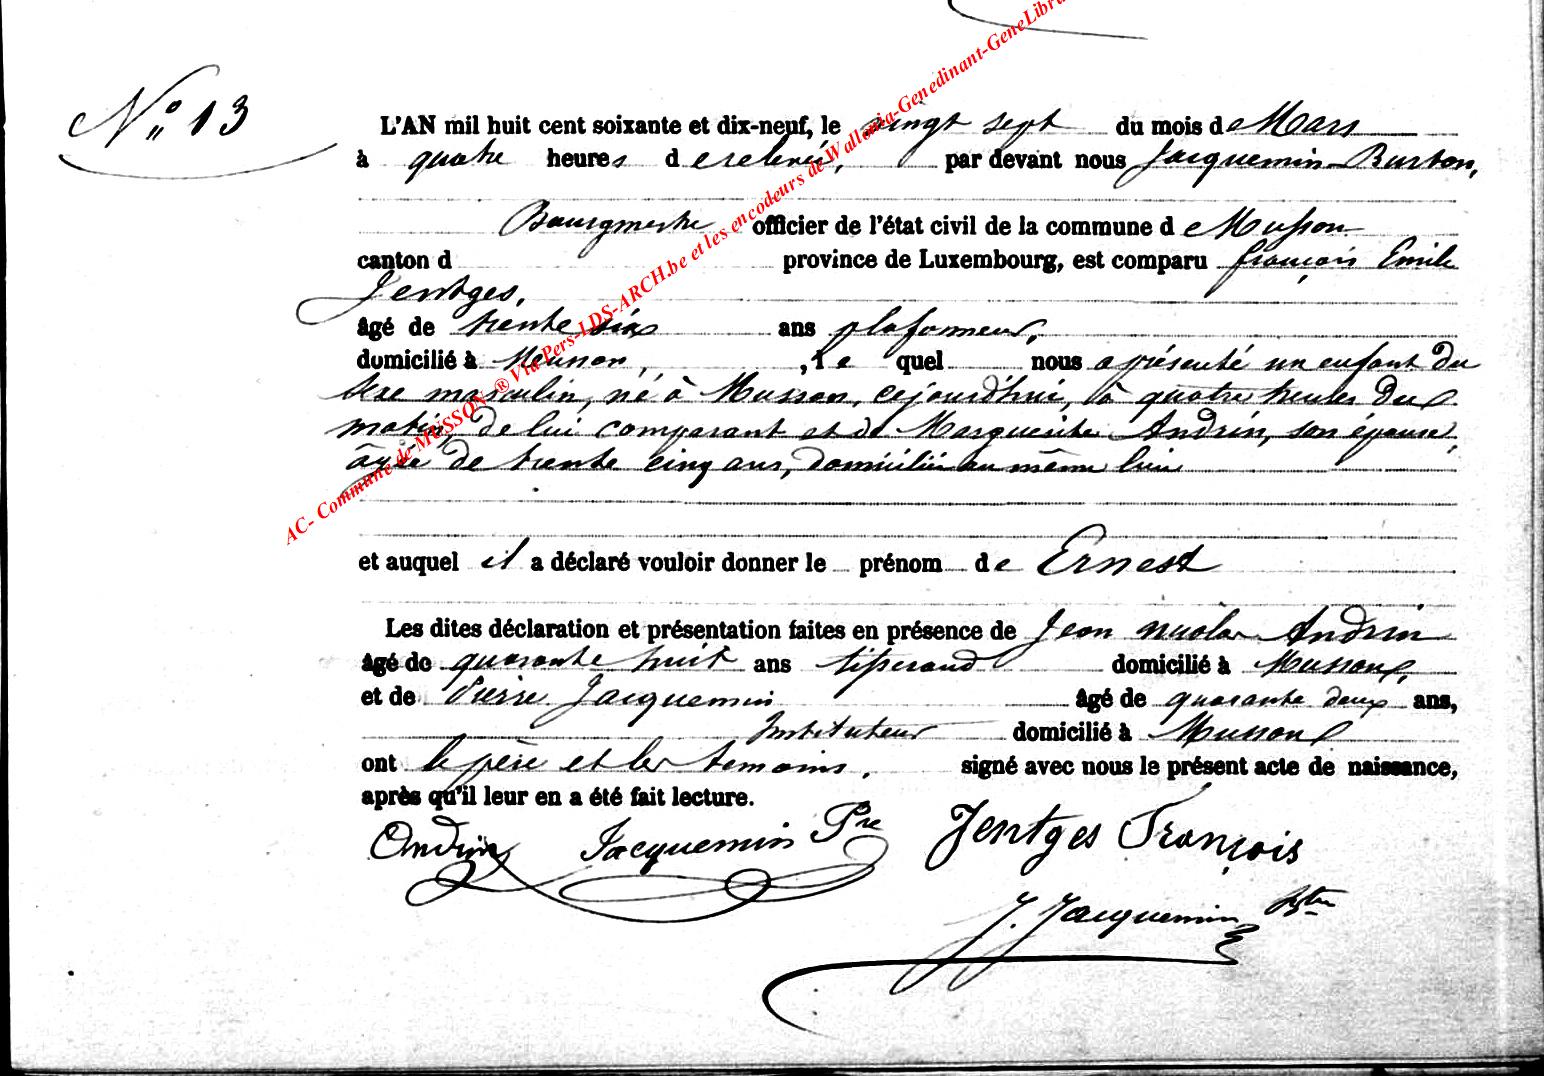 N° 13
L'AN mil huit cent soixante et dix-neuf, le vingt sept du mois de Mars
à quatre heures de relevée, par devant nous Jacquemin-Burton,
Bourgmestre officier de l'état civil de la commune de Musson
canton d province de Luxembourg, est comparu françois Emile
Jentges,
âgé de trente six ans plafonneur,
domicilié à Musson, , le quel nous a présenté un enfant du
sexe masculin, né à Musson, cejourd'hui, à quatre heures du
matin, de lui comparant et de Marguerite Andrin, son épouse,
âgée de trente cinq ans, domiciliée au même lieu
et auquel il a déclaré vouloir donner le prénom de Ernest
Les dites déclaration et présentation faites en présence de Jean nicolas Andrin
âgé de quarante huit ans tisserand domicilié à Musson,
et de Pierre Jacquemin âgé de quarante deux ans,
Instituteur domicilié à Musson
ont le père et les temoins, signé avec nous le présent acte de naissance,
après qu'il leur en a été fait lecture.
Andrin Jacquemin Pre Jentges François
J. Jacquemin
AC- Commune de MUSSON ® Via Pers-LDS-ARCH.be et les encodeurs de Wallonia-Genedinant-GeneLibra